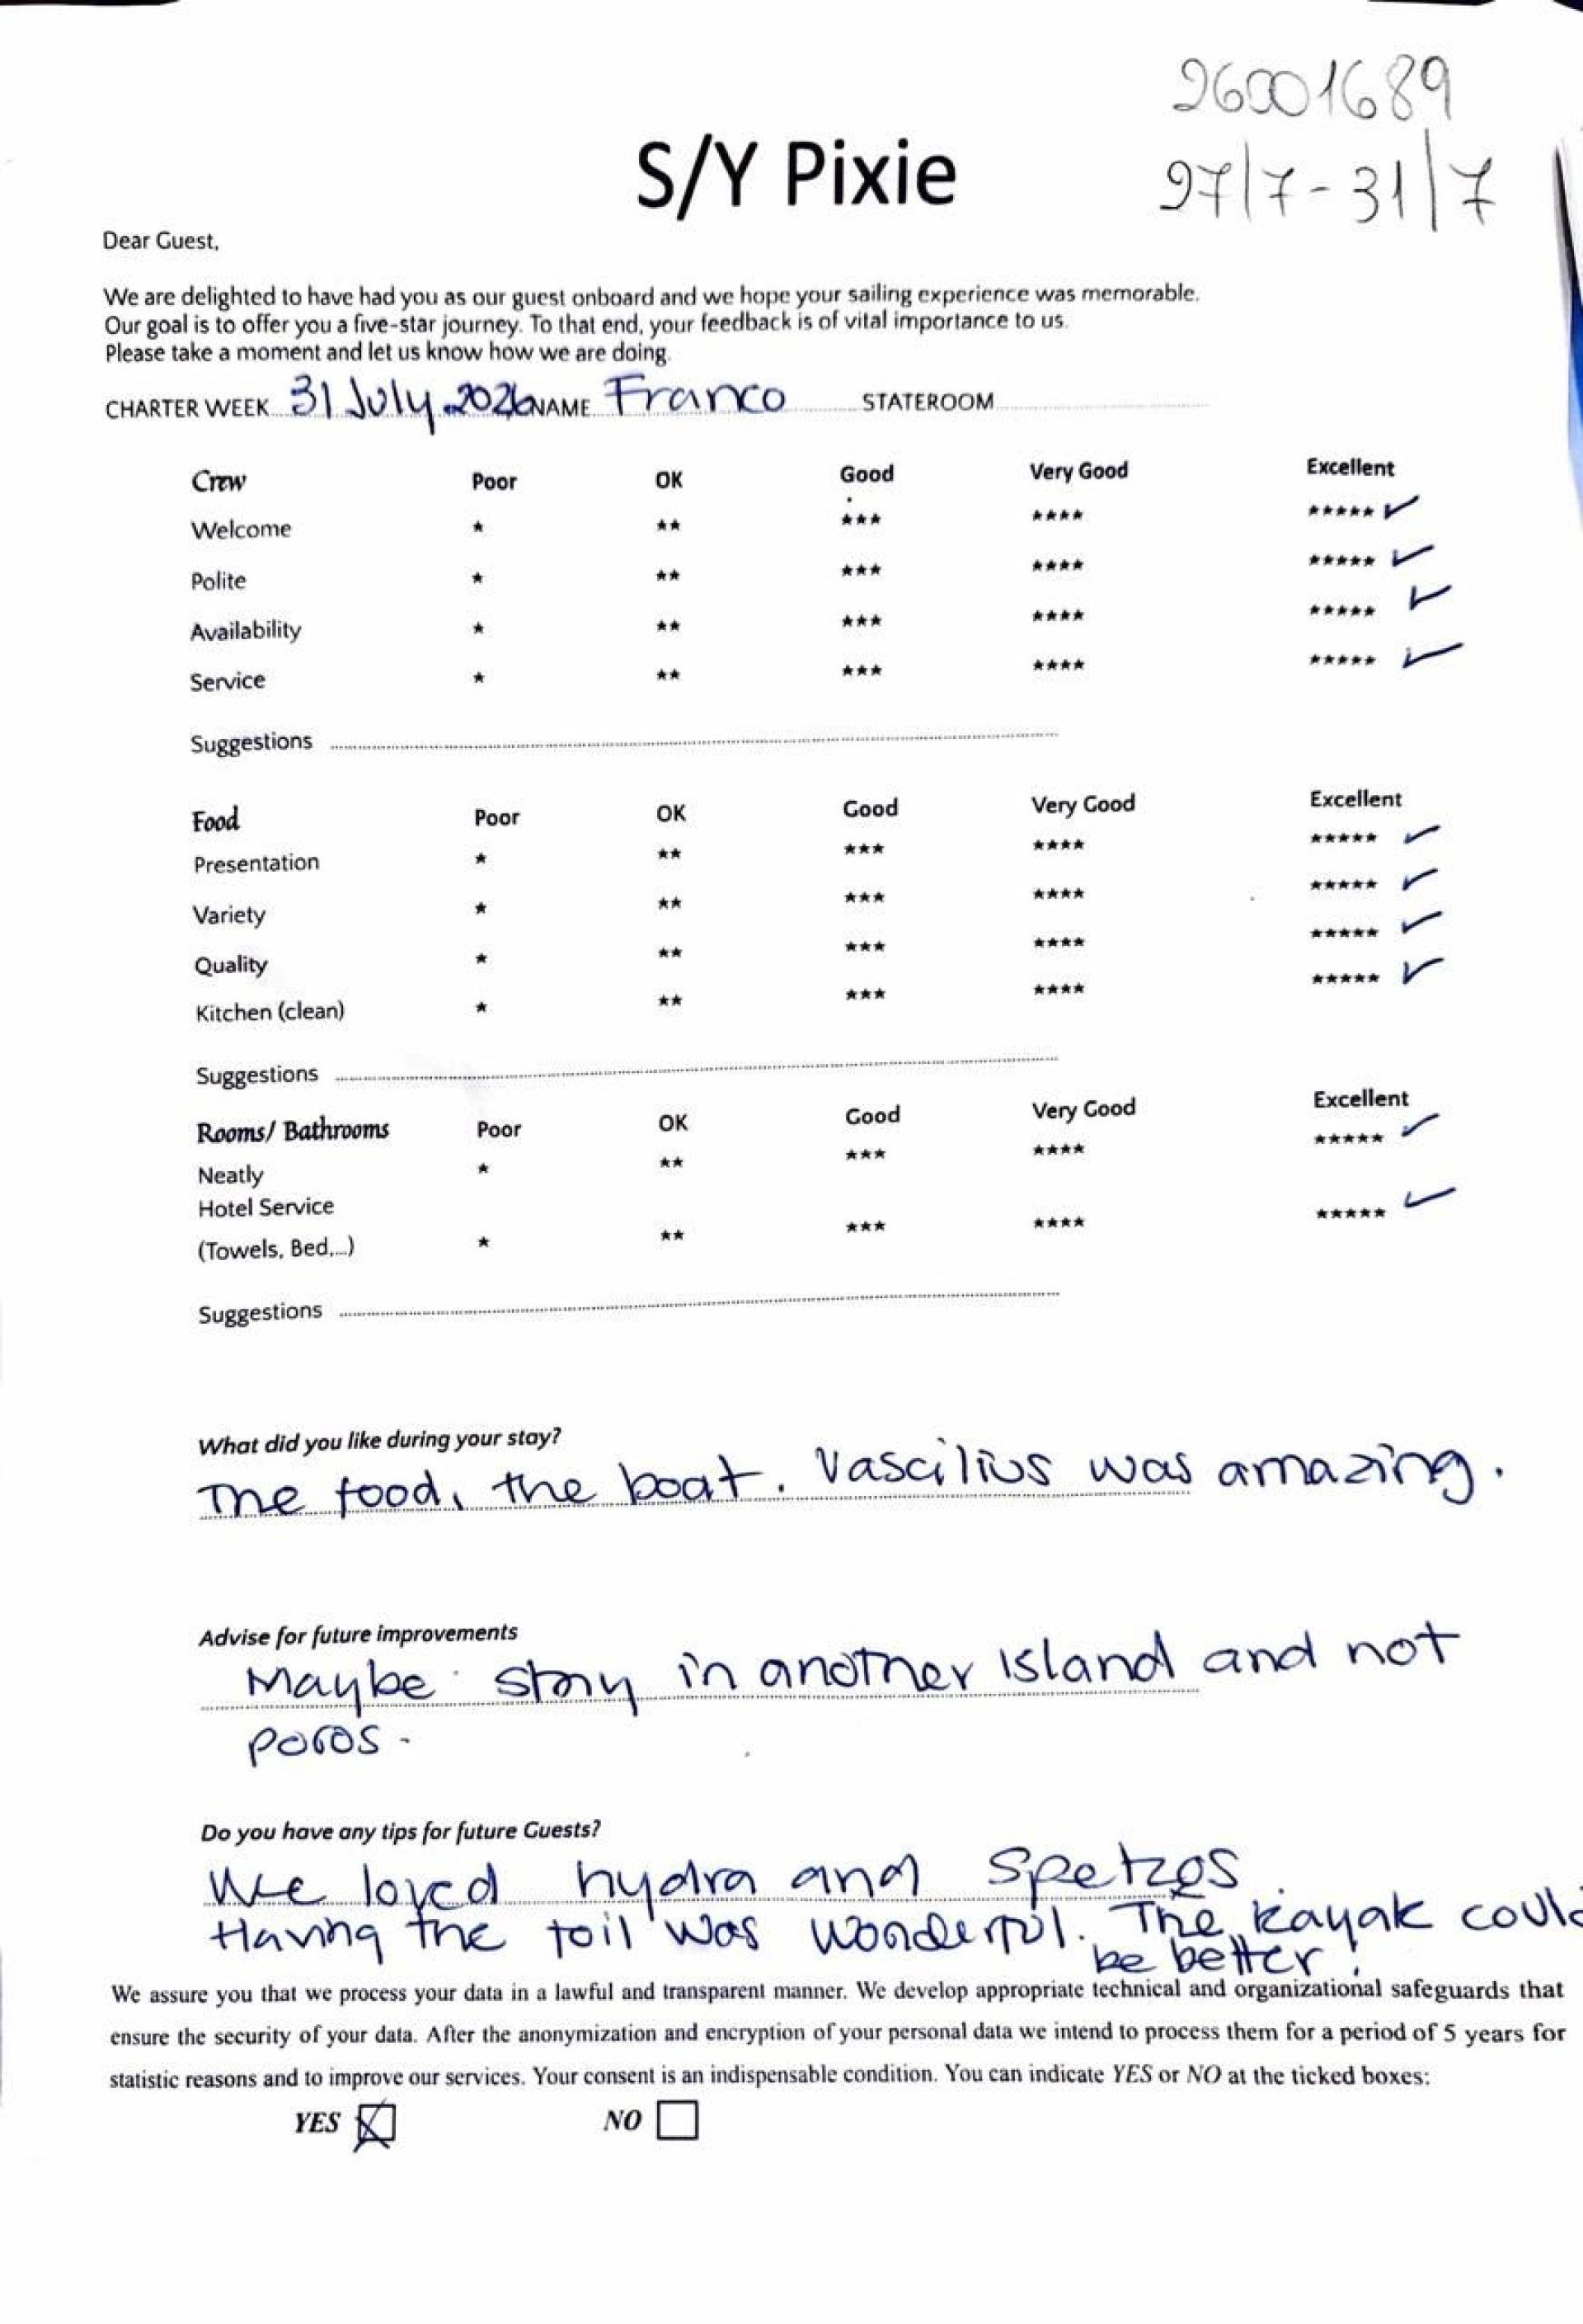 26001689
S/Y Pixie
27/7-31/7
Dear Guest,
We are delighted to have had you as our guest onboard and we hope your sailing experience was memorable.
Our goal is to offer you a five-star journey. To that end, your feedback is of vital importance to us.
Please take a moment and let us know how we are doing.
CHARTER WEEK 31 July 2026 NAME Franco STATEROOM
Crew Poor OK Good Very Good Excellent
Welcome * ** *** **** ***** ✓
Polite * ** *** **** ***** ✓
Availability * ** *** **** ***** ✓
Service * ** *** **** ***** ✓
Suggestions
Food Poor OK Good Very Good Excellent
Presentation * ** *** **** ***** ✓
Variety * ** *** **** ***** ✓
Quality * ** *** **** ***** ✓
Kitchen (clean) * ** *** **** ***** ✓
Suggestions
Rooms/ Bathrooms Poor OK Good Very Good Excellent
Neatly * ** *** **** ***** ✓
Hotel Service
(Towels, Bed,...) * ** *** **** ***** ✓
Suggestions
What did you like during your stay?
The food, the boat. Vascilius was amazing.
Advise for future improvements
Maybe stay in another island and not
poros.
Do you have any tips for future Guests?
We loved hydra and Spetzes.
Having the toil was wonderful. The kayak could
be better!
We assure you that we process your data in a lawful and transparent manner. We develop appropriate technical and organizational safeguards that
ensure the security of your data. After the anonymization and encryption of your personal data we intend to process them for a period of 5 years for
statistic reasons and to improve our services. Your consent is an indispensable condition. You can indicate YES or NO at the ticked boxes:
YES ☒ NO ☐